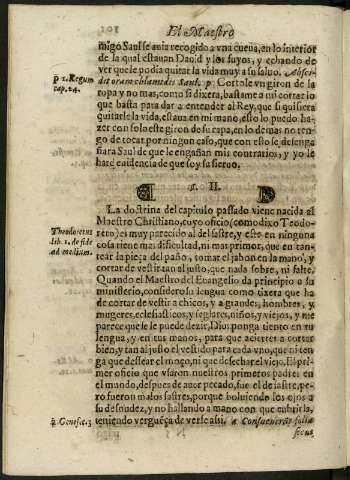 El Maestro
migo Saul se auia recogido a vna cueua, en lo interior
de la qual estauan Dauid y los suyos, y echando de
ver que le podia quitar la vida muy a su saluo. Absci-
p 1. Regum
cap. 24.
dit oram chlamidis Saul. p Cortole vn giron de la
ropa y no mas, como si dixera, bastame a mi cortar lo
que basta para dar a entender al Rey, que si quisiera
quitarle la vida, estaua en mi mano, esso lo puedo ha-
zer con solo este giron de su capa, en lo demas no ten-
go de tocar por ningun caso, que con esso se desenga
ñara Saul de que le engañan mis contrarios, y yo le
hare euidencia de que soy su sieruo.
§. II.
La doctrina del capitulo passado viene nacida al
Maestro Christiano, cuyo oficio (como dixo Teodo-
Theodoretus
lib. 1. de fide
ad medium.
reto) es muy parecido al del sastre, y este en ninguna
cosa tiene mas dificultad, ni mas primor, que en tan-
tear la pieça del paño, tomar el jabon en la mano, y
cortar de vestir tan al justo, que nada sobre, ni falte.
Quando el Maestro del Euangelio da principio a su
ministerio, considero su lengua como tixera que ha
de cortar de vestir a chicos, y a grandes, hombres, y
mugeres, eclesiasticos, y seglares, niños, y viejos, y me
parece que le le puede dezir, Dios ponga tiento en tu
lengua, y en tus manos, para que aciertes a cortar
bien, y tan al justo el vestido para cada vno, que ni ten
ga que dessear el moço, ni que desechar el viejo. El pri-
mer oficio que vsaron nuestros primeros padres en
el mundo, despues de auer pecado, fue el de sastre, pe-
ro fueron malos sastres, porque boluiendo los ojos a
su desnudez, y no hallando a mano con que cubrirla,
a Genesis. 3
teniendo verguença de verse assi. a Consuerunt folia
ficus